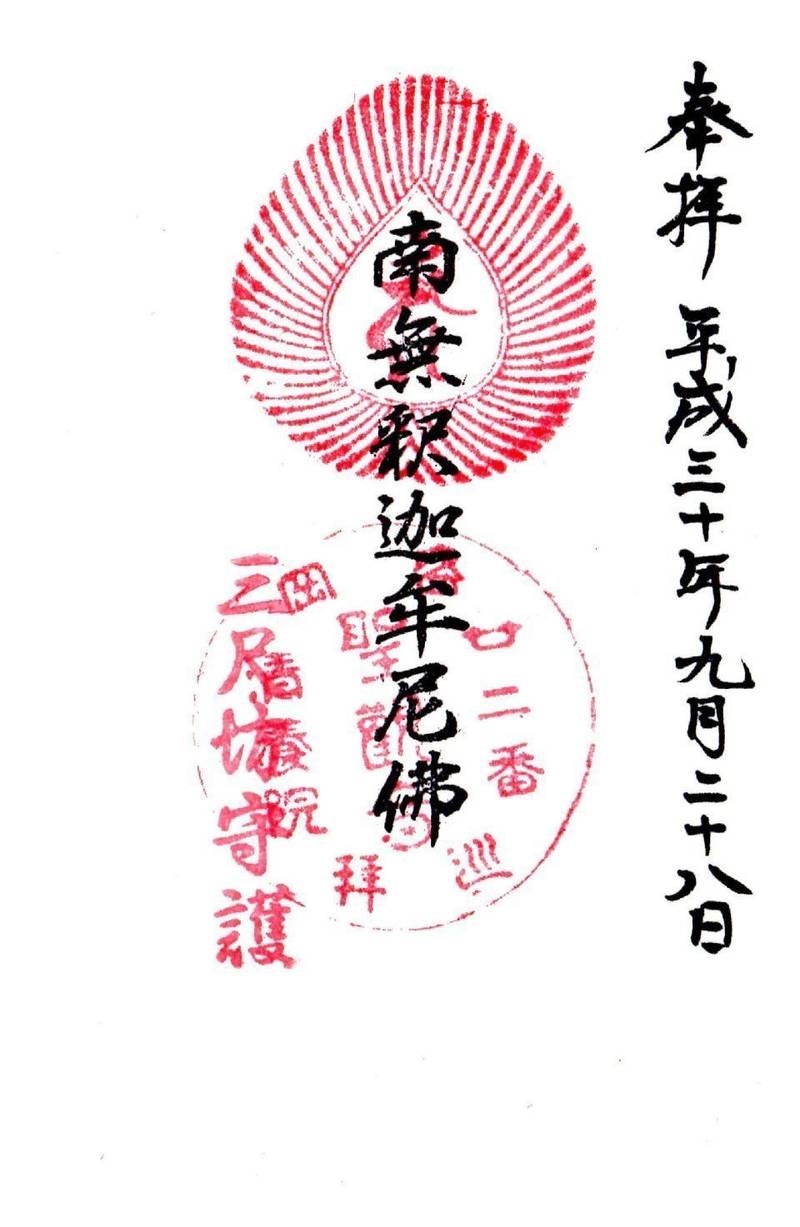 奉拝 平成三十年九月二十八日
南無釈迦牟尼佛
廿二番
聖観
巡拝
三尺坊守護